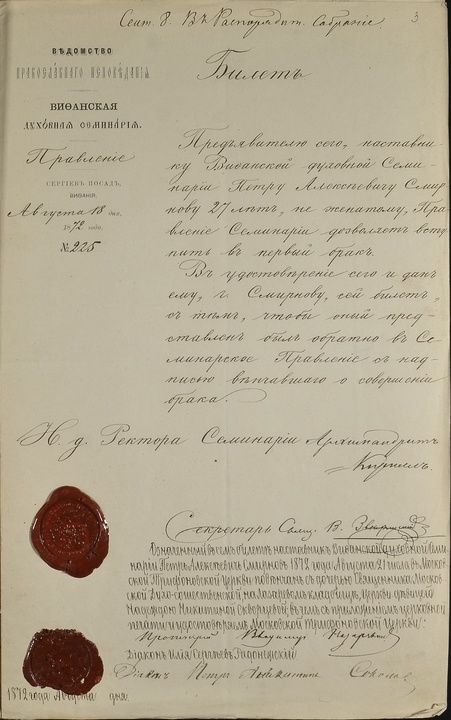 Сент. 8. Въ Распорядит. Собраніе
3
ВѢДОМСТВО
ПРАВОСЛАВНАГО ИСПОВѢДАНІЯ
Билетъ
ВИѲАНСКАЯ
ДУХОВНАЯ СЕМИНАРІЯ.
Правленіе
СЕРГІЕВЪ ПОСАДЪ,
ВИѲАНІЯ.
Августа 18 дня.
1872 года.
№ 225
Предъявителю сего, наставни-
ку Виѳанской духовной Семи-
наріи Петру Алексѣевичу Смир
нову 27 лѣтъ, не женатому, Пра
вленіе Семинаріи дозволяетъ всту
пить въ первый бракъ.
Въ удостовѣреніе сего и данъ
ему, г. Смирнову, сей билетъ,
съ тѣмъ, чтобы оный пред-
ставленъ былъ обратно въ Се-
минарское Правленіе съ над-
писью вѣнчавшаго о совершеніи
брака.
И. д. Ректора Семинаріи Архимандритъ
Секретарь Сем. В.
Означенный въ семъ билетѣ наставникъ Виѳанской духовной Семи
наріи Петръ Алексѣевичъ Смирновъ 1872 года Августа 21 числа въ Москов
ской Трифоновской Церкви повѣнчанъ съ дочерью Священника Москов
ской Духо-сошественской на Лазаревомъ кладбищѣ, Церкви дѣвицею
Надеждою Никитиною Скворцовой; въ чемъ съ приложеніемъ церковной
печати и удостовѣряемъ Московской Трифоновской Церкви:
Протоіерей Владиміръ
Діаконъ Илія Сергіевъ Радонежскій
Діакъ Петръ
1872 года Августа дня.